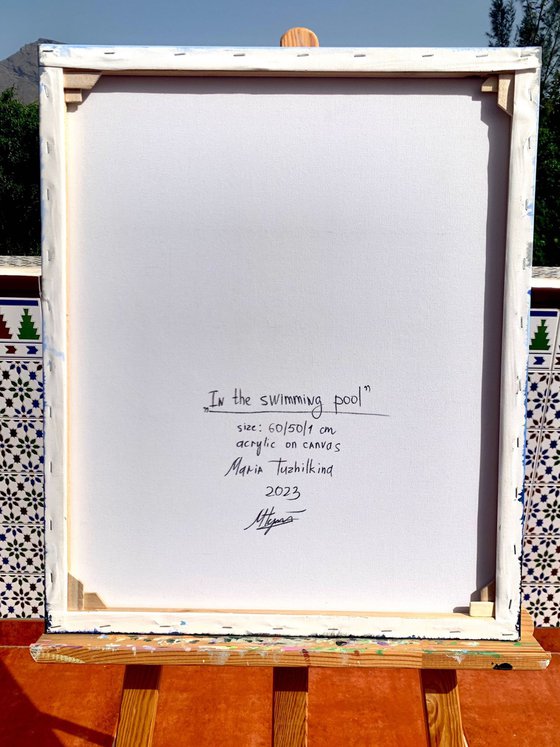 „In the swimming pool"
size: 60/50/1 cm
acrylic on canvas
Maria Tuzhilkina
2023